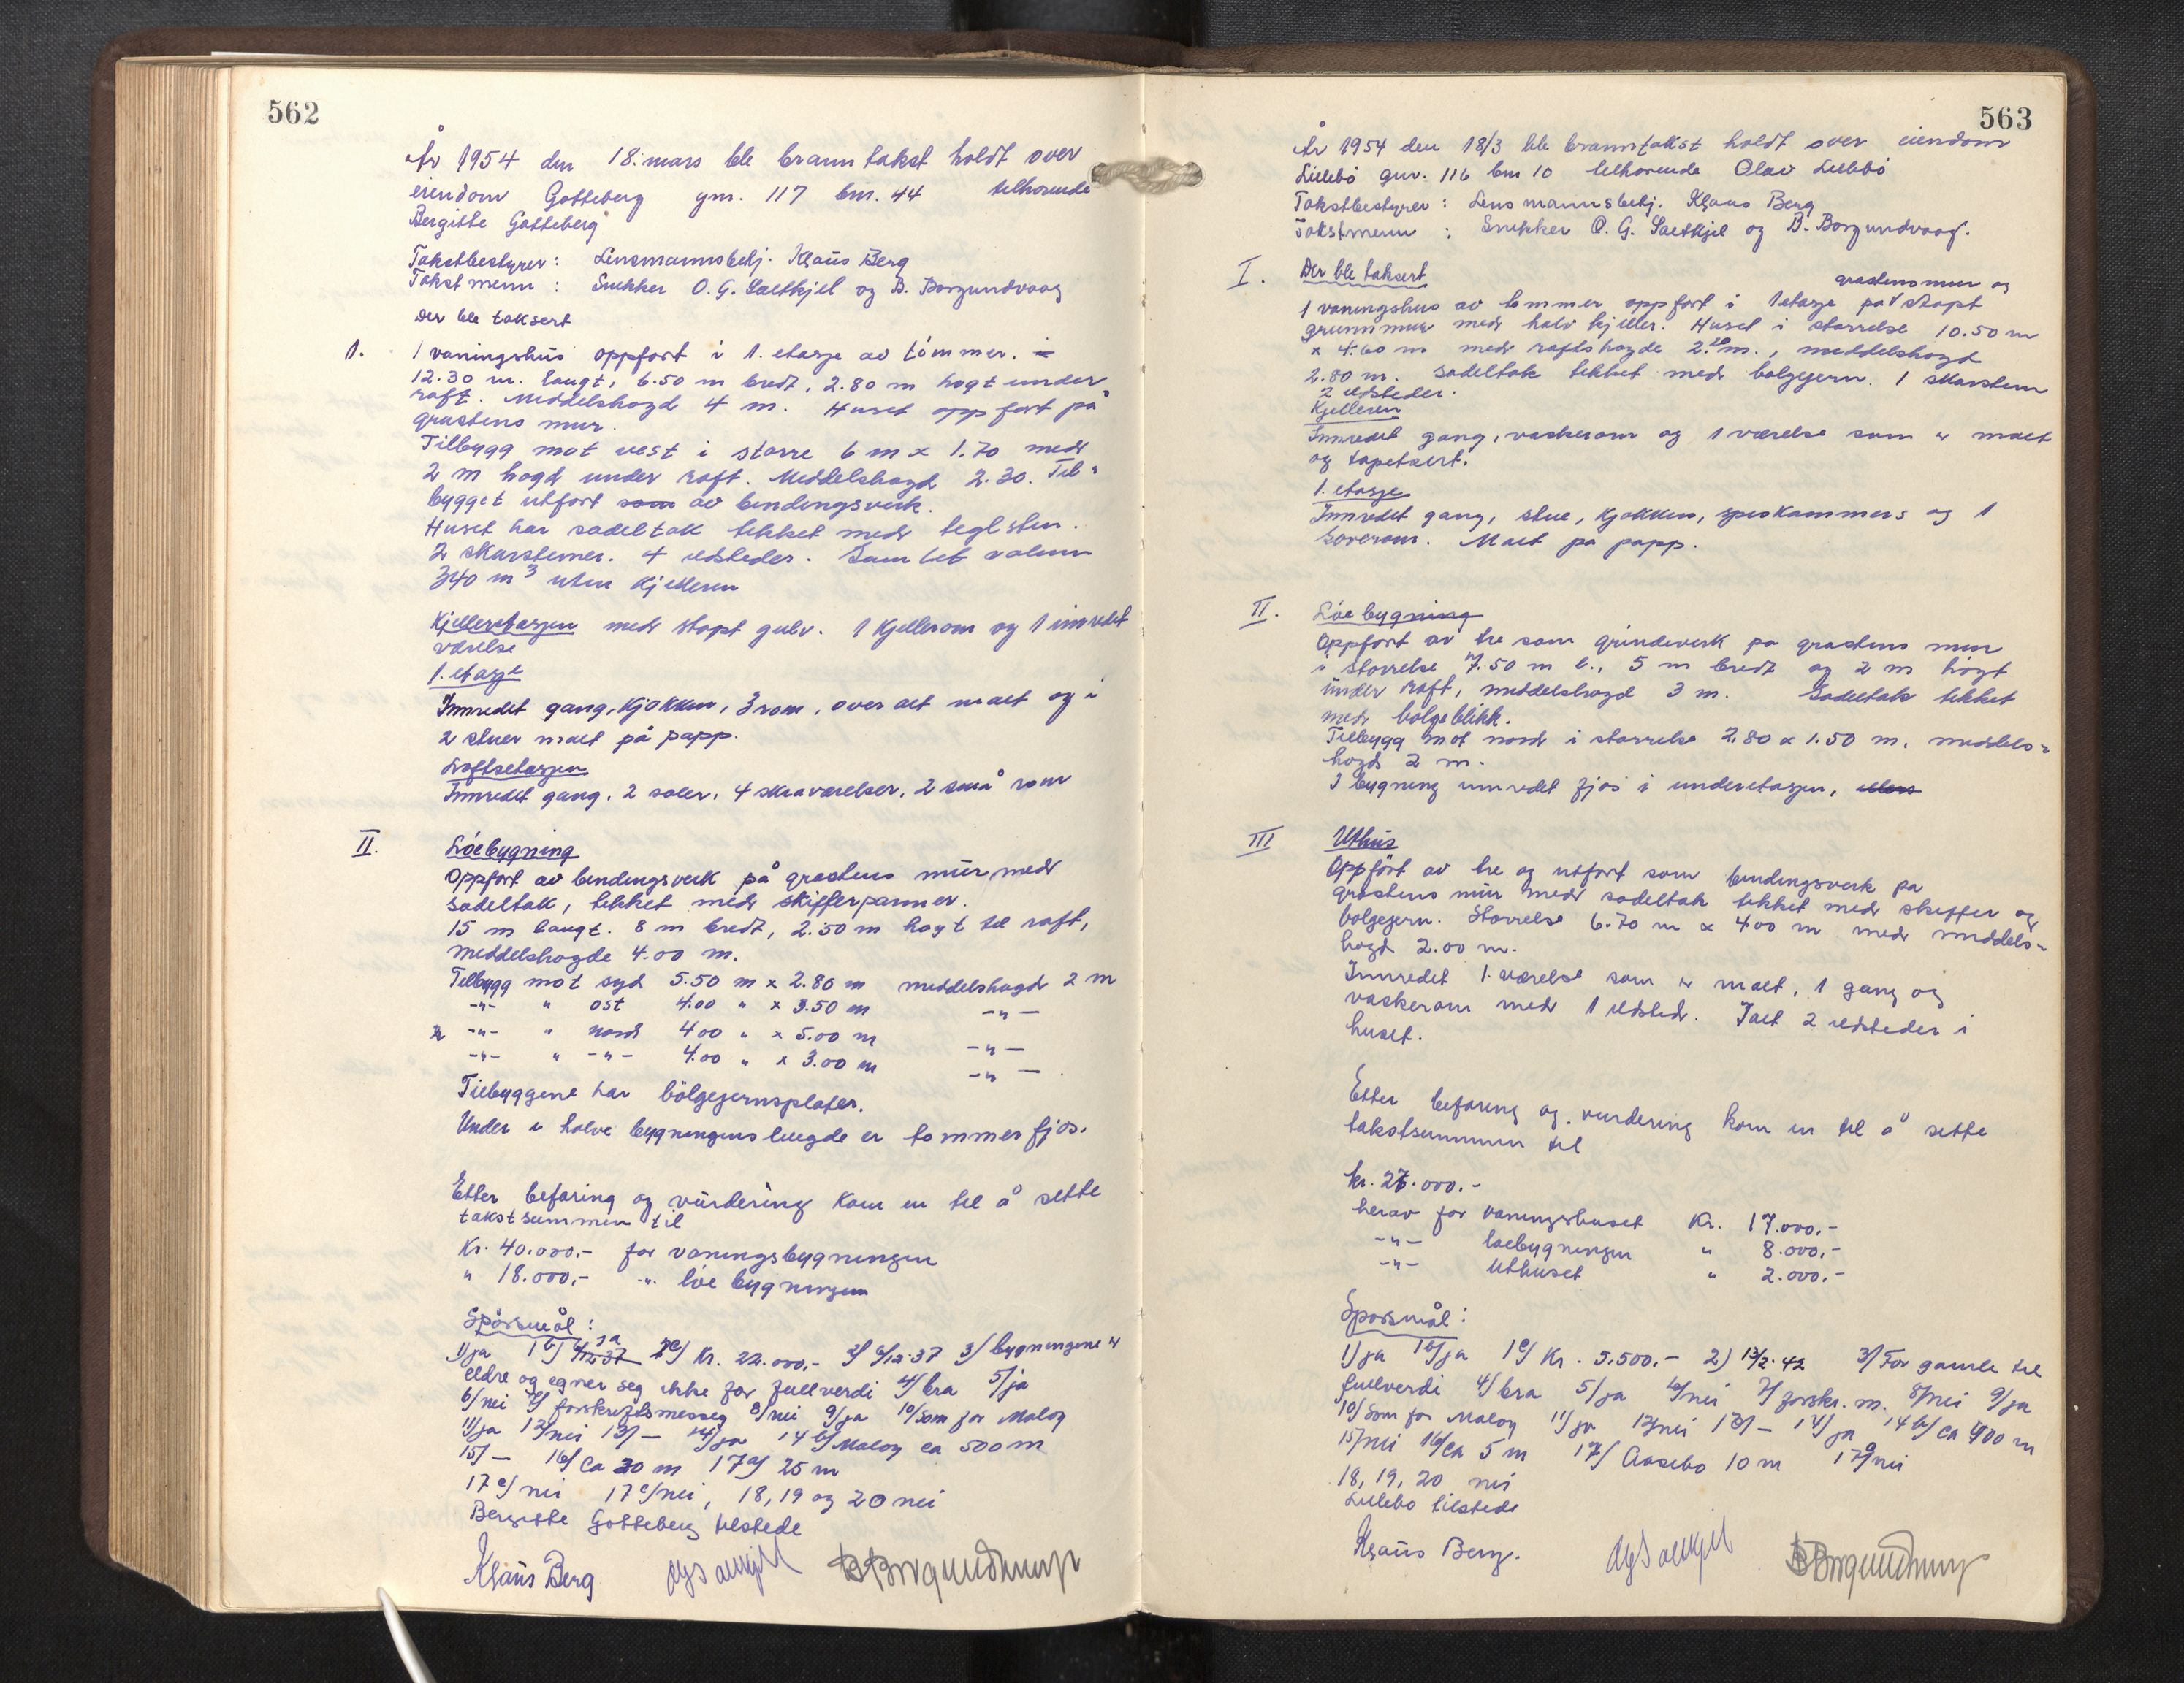 562
År 1954 den 18. mars ble branntakst holdt over
eiendom Gotteberg gnr. 117 bnr. 44 tilhorende
Bergitte Gotteberg
Takstbestyrer: Lensmannsbetj. Klaus Berg
Takstmenn : Snekker O. G. Saltkjel og B. Borgundvaag
Der ble taksert
1. 1 vaningshus oppfort i 1. etasje av tömmer.
12.30 m. langt, 6.50 m bredt, 2.80 m hogt under
raft. Middelshogd 4 m. Huset oppfort på
grastens mur.
Tilbygg mot vest i storre 6 m x 1.70 med
2 m hogd under raft. Middelshogd 2.30. Til-
bygget utfort som av bindingsverk.
Huset har sadeltak tekket med teglsten.
2 skorstener. 4 ildsteder. Samlet volum
340 m3 uten Kjelleren
Kjelleretasjen med stopt gulv. 1 Kjellerom og 1 innredet
værelse
1. etasje
Innredet gang, Kjokken, 3 rom, over alt malt og i
2 stuer malt på papp.
Loftsetasjen
Innredet gang. 2 saler. 4 skraværelser. 2 små rom
II. Löebygning
Oppfort av bindingsverk på grastens mur med
sadeltak, tekket med skifferpanner.
15 m langt. 8 m bredt, 2.50 m hogt til raft,
middelshogde 4.00 m.
Tilbygg mot syd 5.50 m x 2.80 m middelshogd 2 m
-"- " ost 4.00 " x 3.50 m -"-
-"- " nord 4.00 " x 5.00 m -"-
-"- " -"- 4.00 " x 3.00 m -"-
Tilbyggene har bölgejernsplater.
Under i halve bygningens lengde er tommerfjos.
Etter befaring og vurdering kom en til å sette
takstsummen til
Kr. 40.000.- for vaningsbygningen
" 18.000.- -"- löebygningen
Spörsmål:
1) ja 1b) 6/12-37 ja 1c) Kr. 22.000.- 2) 6/12-37 3) bygningene er
eldre og egner seg ikke for fullverdi 4) bra 5) ja
6) nei 7) forskriftsmessig 8) nei 9) ja 10) Som for Maloy
11) ja 12) nei 13) - 14) ja 14b) Maloy ca 500 m
15) - 16) Ca 30 m 17a) 25 m
17c) nei 17c) nei, 18, 19 og 20 nei
Bergitte Gotteberg tilstede
Klaus Berg
563
År 1954 den 18/3 ble branntakst holdt over eiendom
Lillebö gnr. 116 bnr 10 tilhorende Olav Lillebö
Takstbestyrer: Lensmannsbetj. Klaus Berg
Takstmenn : Snekker O. G. Saltkjel og B. Borgundvaag.
I. Der ble taksert
grastensmur og
1 vaningshus av tommer oppfort i 1 etasje på stopt
grunnmur med halv kjeller. Huset i storrelse 10.50 m
x 4.60 m med raftshogde 2.20 m., middelshogd
2.80 m. Sadeltak tekket med bolgejern. 1 skorsten
2 ildsteder.
Kjelleren
Innredet gang, vaskerom og 1 værelse som er malt
og tapetsert.
1. etasje
Innredet gang, stue, kjokken, spiskammers og 1
soverom. Malt på papp.
II. Löebygning
Oppfort av tre som grindverk på grastens mur
i storrelse 7.50 m l., 5 m bredt og 2 m högt
under raft, middelshogd 3 m. Sadeltak tekket
med bolgeblikk.
Tilbygg mot nord i storrelse 2.80 x 1.50 m. middels-
hogd 2 m.
I bygning innredet fjos i underetasjen, ellers
III Uthus
Oppfört av tre og utfort som bindingsverk på
grastens mur med sadeltak tekket med skiffer og
bolgejern. Storrelse 6.70 m x 4.00 m med middels-
hogd 2.00 m.
Innredet 1 værelse som er malt, 1 gang og
vaskerom med 1 ildsted. Ialt 2 ildsteder i
huset.
Etter befaring og vurdering kom en til å sette
takstsummen til
kr. 27.000.-
herav for vaningshuset Kr. 17.000.-
-"- loebygningen " 8.000.-
-"- uthuset " 2.000.-
Sporsmål:
1) ja 1b) ja 1c) Kr. 5.500.- 2) 13/2-42 3) For gamle til
fullverdi 4) bra 5) ja 6) nei 7) forskr. m. 8) nei 9) ja
10) Som for Maloy 11) ja 12) nei 13) - 14) ja 14b) ca 900 m
15) nei 16) Ca 5 m 17) Aasebo 10 m 17c) nei
18, 19, 20 nei
Lillebo tilstede
Klaus Berg.